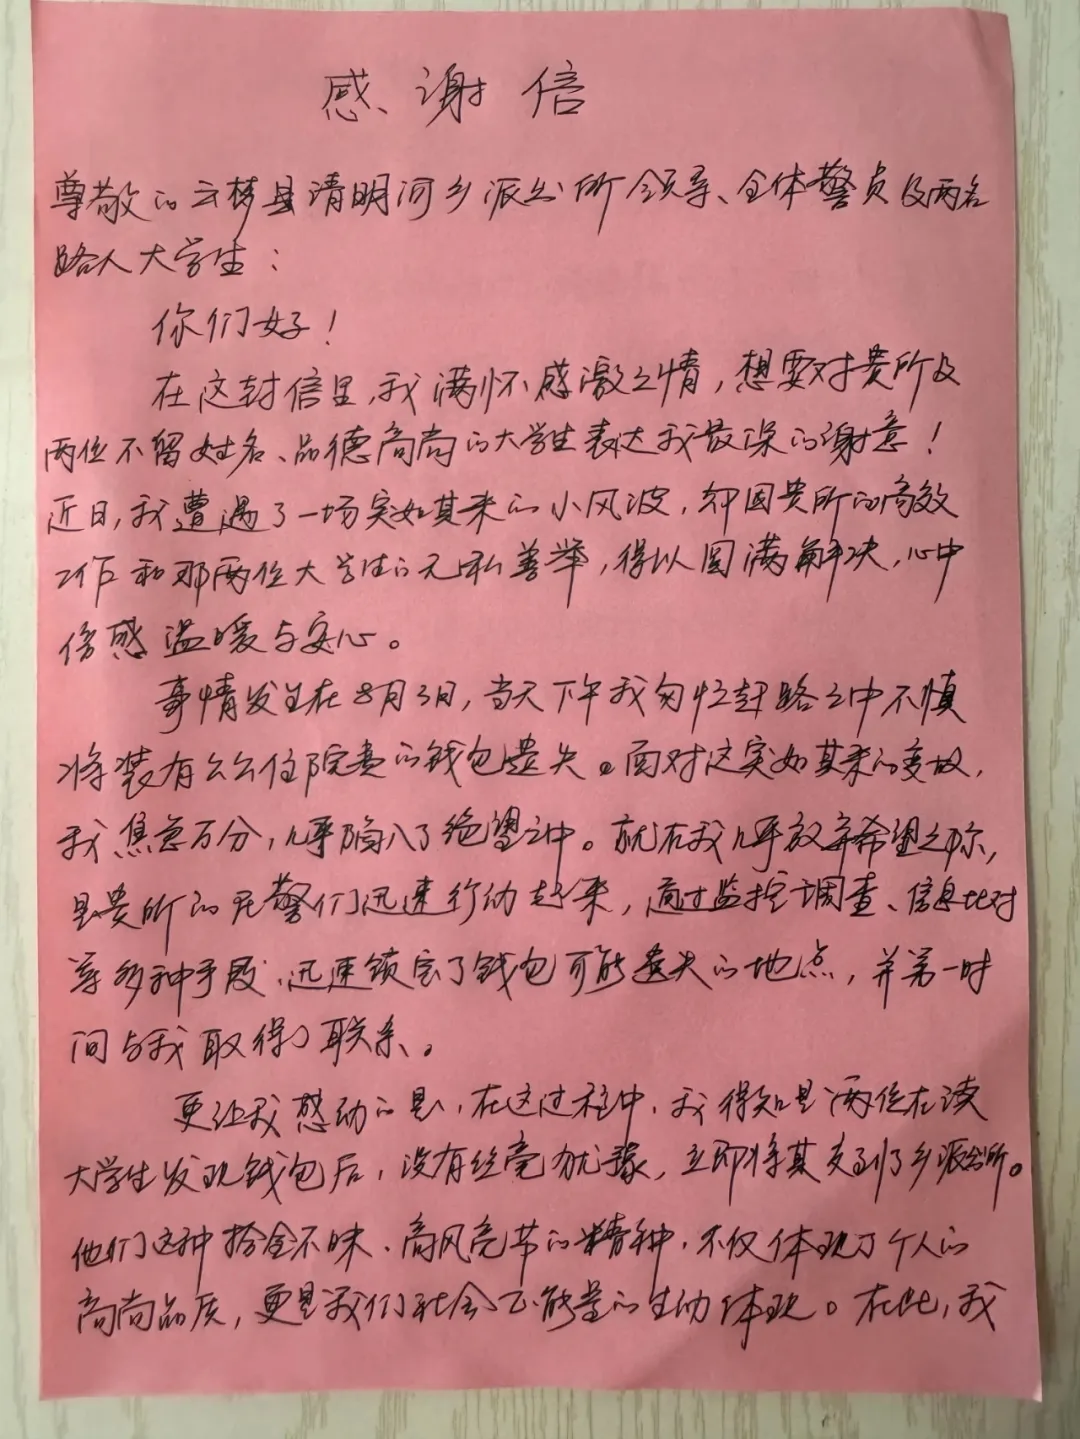 感谢信
尊敬的云梦县清明河乡派出所领导、全体警员及两名
路人大学生：
你们好！
在这封信里,我满怀感激之情，想要对贵所及
两位不留姓名、品德高尚的大学生表达我最深的谢意！
近日,我遭遇了一场突如其来的小风波，却因贵所的高效
工作和那两位大学生的无私善举，得以圆满解决，心中
倍感温暖与安心。
事情发生在8月3日，当天下午我匆忙赶路之中不慎
将装有公公住院费的钱包遗失。面对这突如其来的变故，
我焦急万分，几乎陷入了绝望之中。就在我几乎放弃希望之际，
是贵所的民警们迅速行动起来，通过监控调查、信息比对
等多种手段，迅速锁定了钱包可能遗失的地点，并第一时
间与我取得了联系。
更让我感动的是，在这过程中，我得知是两位在读
大学生发现钱包后，没有丝毫犹豫，立即将其交到了乡派出所。
他们这种拾金不昧、高风亮节的精神，不仅体现了个人的
高尚品质，更是我们社会正能量的生动体现。在此，我